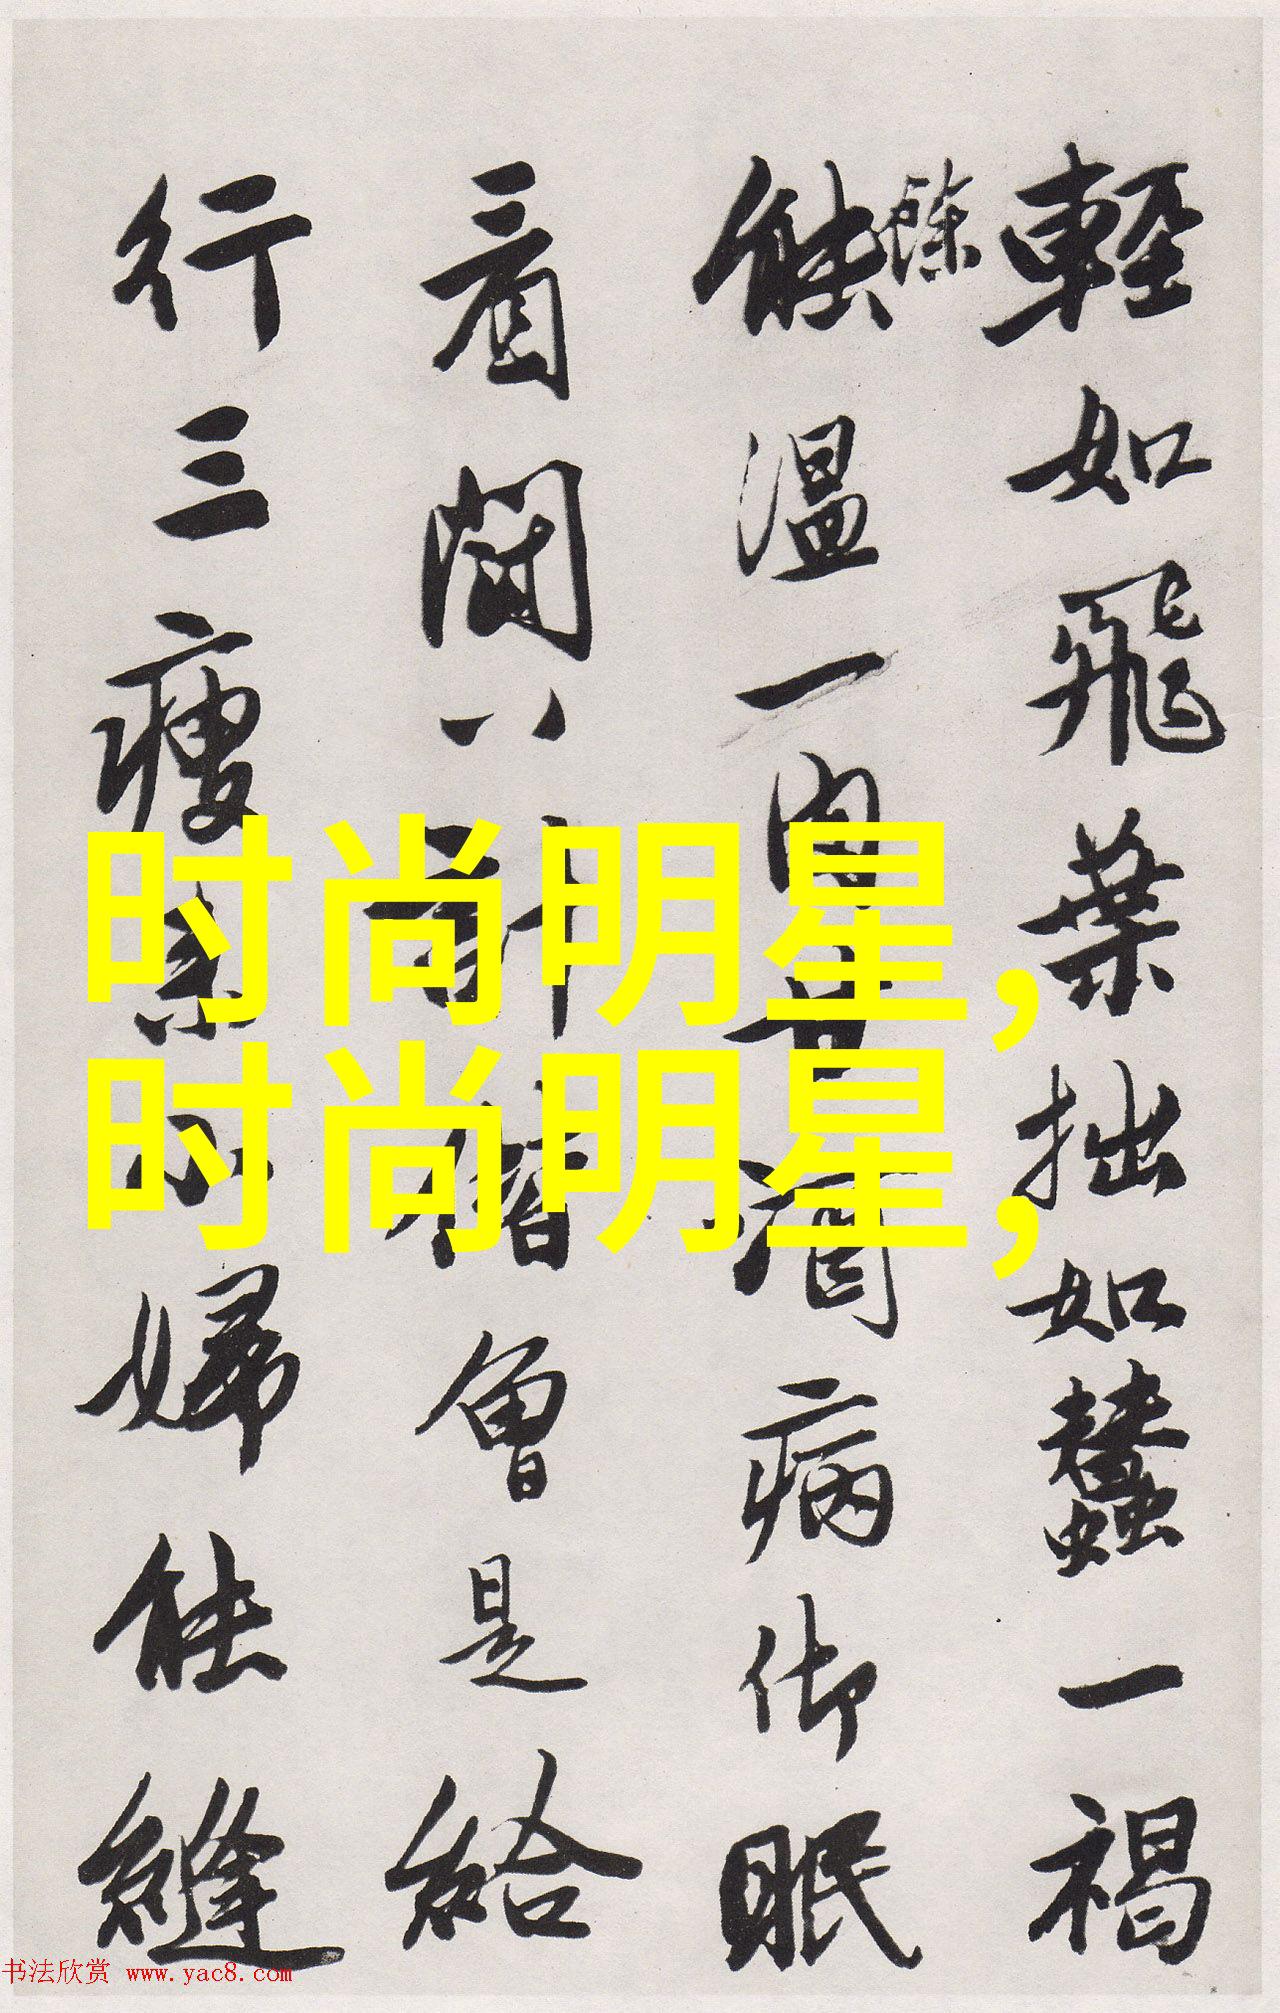 輕如飛葉拙如蠶一褐
餘
能溫一酒病御眠
看鬭八曾是給
行三瘦婦能縫
时尚明星，
时尚明星，
书法欣赏 www.yac8.com